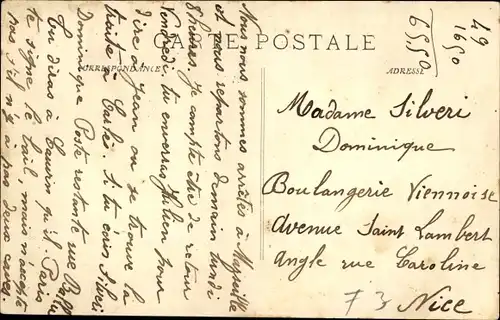 CARTE POSTALE
CORRESPONDANCE
ADRESSE
49
1650
6550
Madame Silveri
Dominique
Boulangerie Viennoise
Avenue Saint Lambert
Angle rue Caroline
Nice
73
Nous nous sommes arrêtés à Marseille
et nous repartons demain lundi
8 heures. Je compte être de retour
Vendredi tu enverras pour
dire à Jean ou se trouve la
traite Si tu écris
Dominique Poste restante rue
Tu diras à qu'il
te signe le bail, mais n'accepte
pas s'il n'y a pas deux caves.